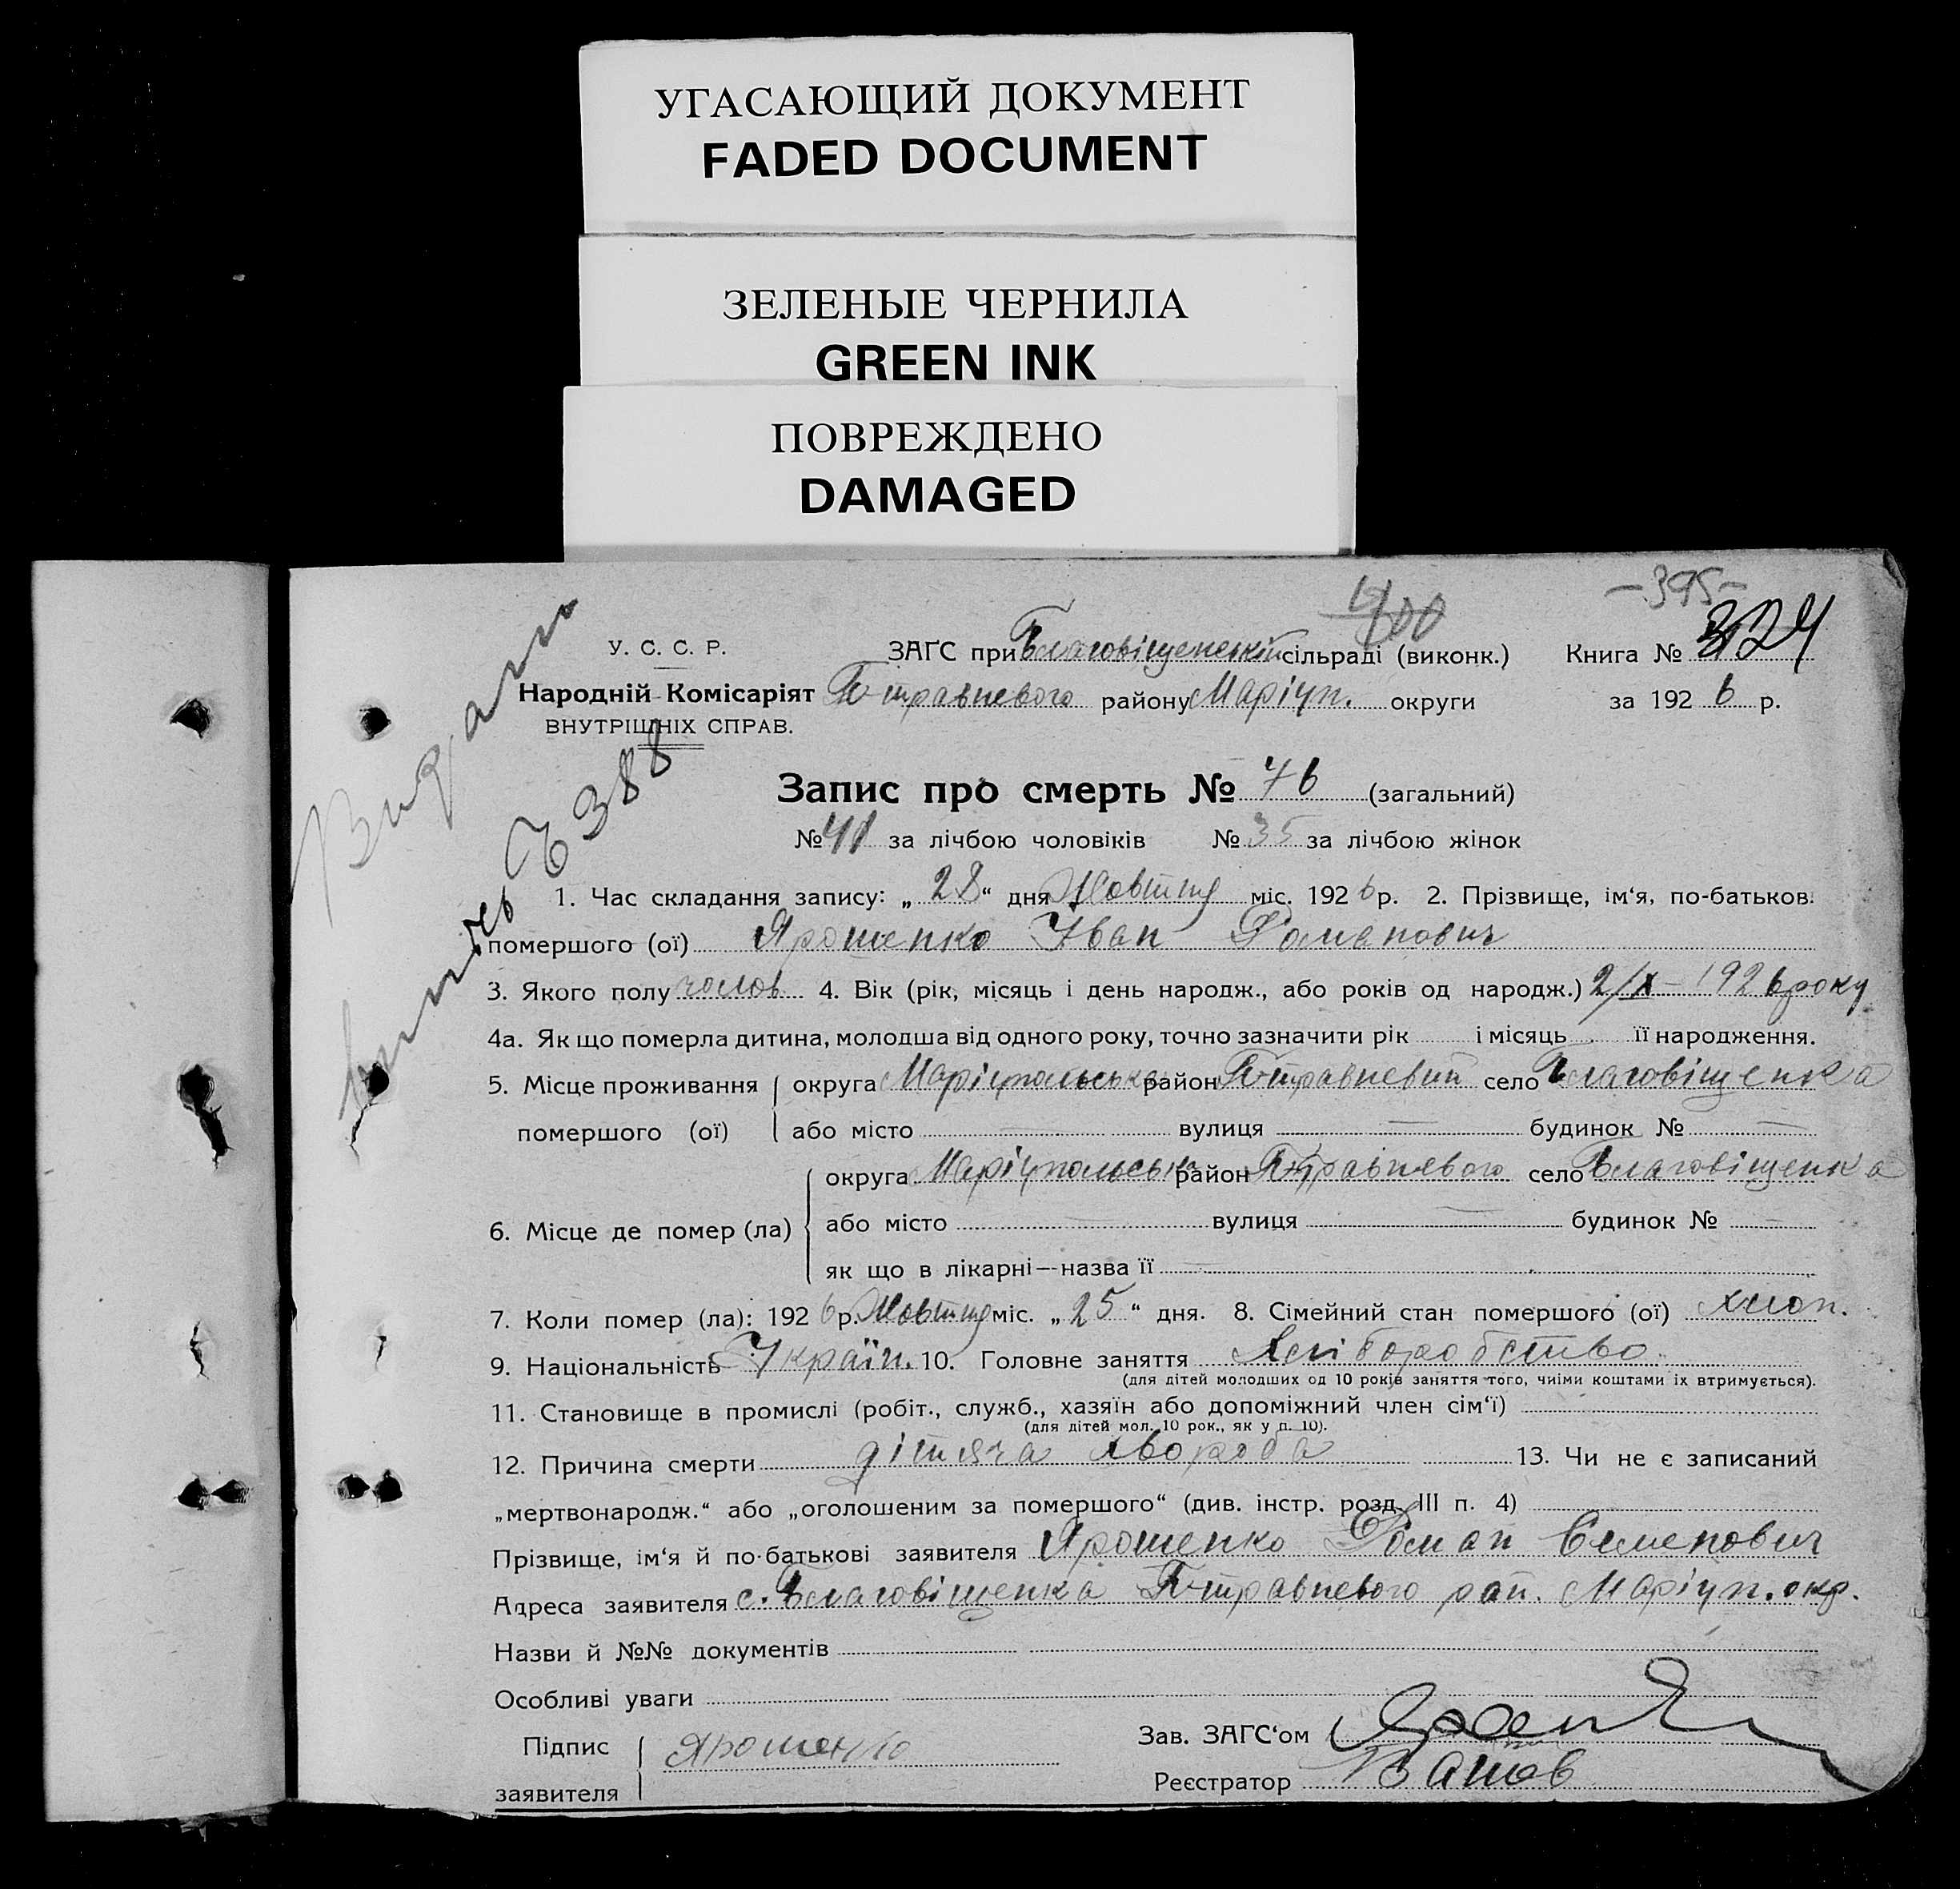 УГАСАЮЩИЙ ДОКУМЕНТ
FADED DOCUMENT
ЗЕЛЕНЫЕ ЧЕРНИЛА
GREEN INK
ПОВРЕЖДЕНО
DAMAGED
-395-
400
У. С. С. Р. ЗАГС при Благовіщенській сільраді (виконк.) Книга № 324
Народній Комісаріят П-травневого району Маріуп. округи за 1926 р.
ВНУТРІШНІХ СПРАВ.
Видан
388
Запис про смерть № 76 (загальний)
№ 41 за лічбою чоловіків № 35 за лічбою жінок
1. Час складання запису: „28“ дня Жовтня міс. 1926 р. 2. Прізвище, ім‘я, по-батьков.
помершого (ої) Ярошенко Іван Романович
3. Якого полу чолов. 4. Вік (рік, місяць і день народж., або років од народж.) 2/X-1926 року
4а. Як що померла дитина, молодша від одного року, точно зазначити рік і місяць її народження.
5. Місце проживання округа Маріупольська район П-травневий село Благовіщенка
помершого (ої) або місто — вулиця — будинок № —
округа Маріупольська район П-травневого село Благовіщенка
6. Місце де помер (ла) або місто — вулиця — будинок № —
як що в лікарні—назва її —
7. Коли помер (ла): 1926 р. Жовтня міс. „25“ дня. 8. Сімейний стан помершого (ої) хлоп.
9. Національність Україн. 10. Головне заняття Хліборобство
(для дітей молодших од 10 років заняття того, чиїми коштами їх втримується).
11. Становище в промислі (робіт., служб., хазяїн або допоміжний член сім‘ї)
(для дітей мол. 10 рок., як у п. 10).
12. Причина смерти дітяча хвороба 13. Чи не є записаний
„мертвонародж.“ або „оголошеним за помершого“ (див. інстр. розд. III п. 4)
Прізвище, ім‘я й по-батькові заявителя Ярошенко Роман Семенович
Адреса заявителя с. Благовіщенка П-травневого рай. Маріуп. окр.
Назви й №№ документів
Особливі уваги
Підпис заявителя Ярошенко
Зав. ЗАГС‘ом
Реєстратор